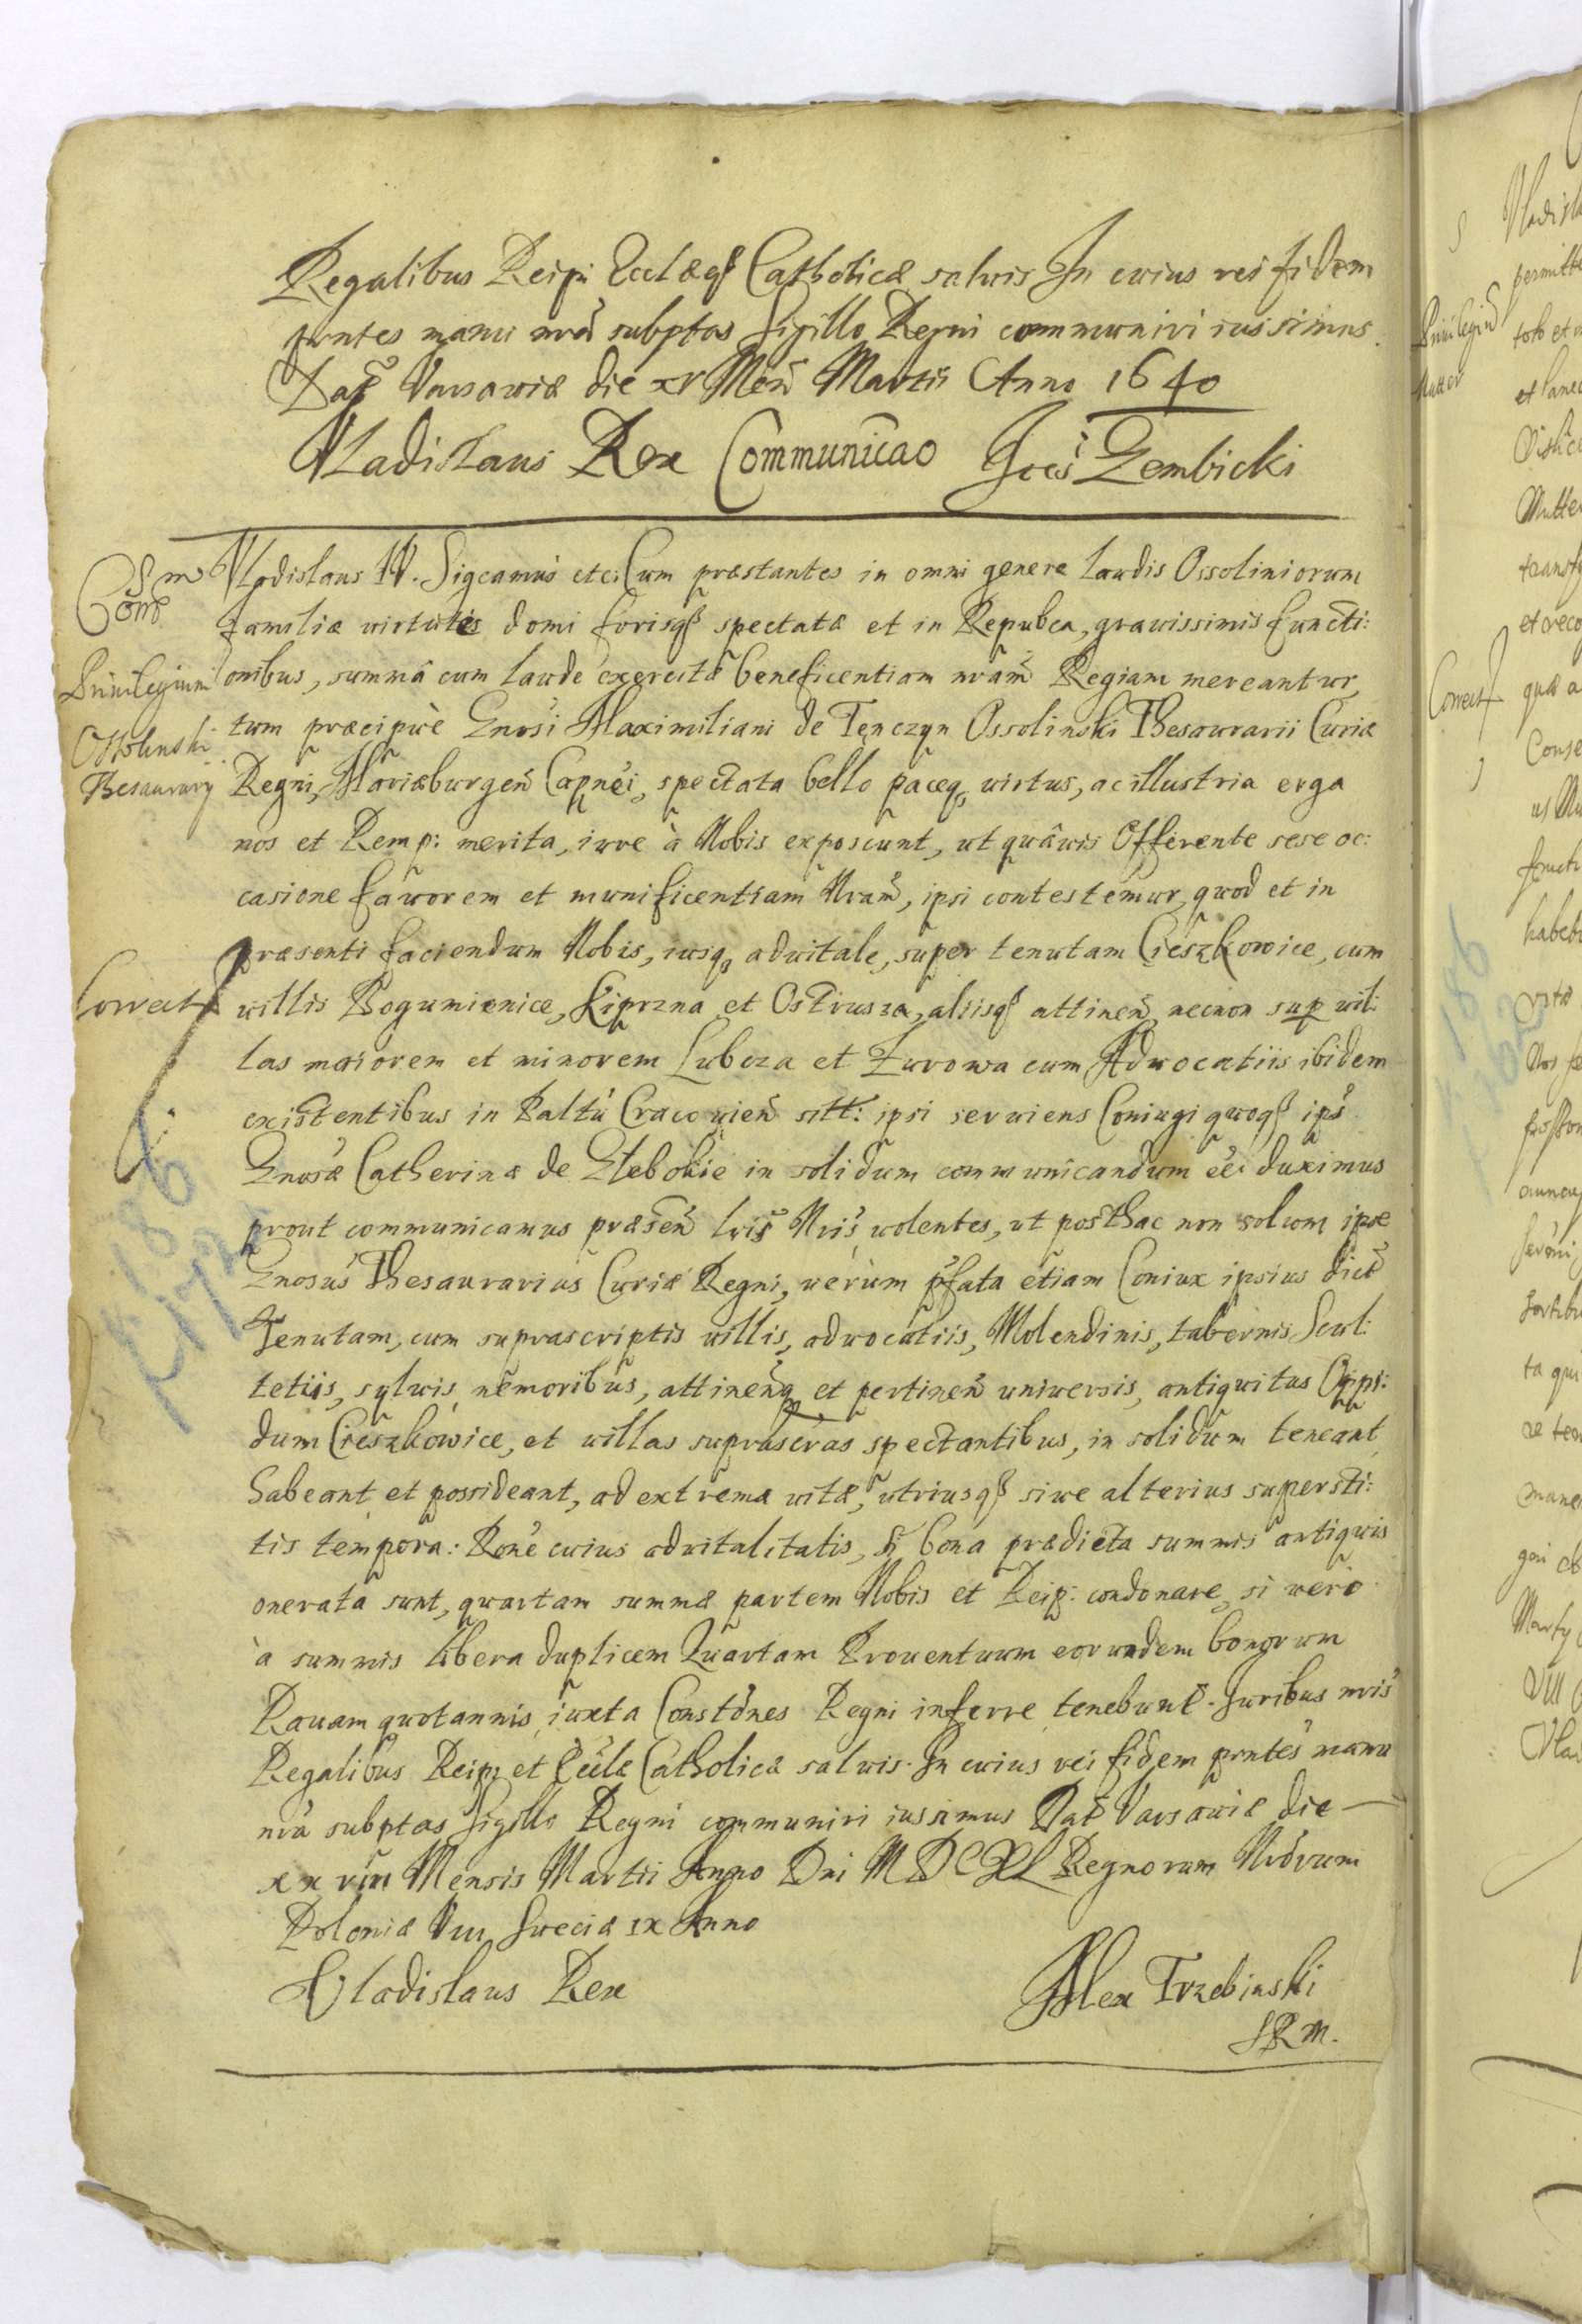 Regalibus Reipu Ecclæq Catholicæ salvis In cuius rei fidem
pntes manu nrã subptas Sigillo Regni communiri iussimus.
Dat Varsaviæ die xv Men Martii Anno 1640
Vladislaus Rex Communicao Joes Gembicki
Vladislaus IV. Sigcamus etc: Cum præstantes in omni genere laudis Ossoliniorum
Com
familiæ virtutes domi forisq spectatæ et in Repubca, gravissimis functi:
Privilegium
onibus, summâ cum laude exercitæ beneficentiam nram Regiam mereantur,
Ossolinski
tum præcipuè Gnosi Maximiliani de Tęnczyn Ossolinski Thesaurarii Curiæ
Thesaurarÿ
Regni, Mariæburgen Capnei, spectata bello paceq virtus, ac illustria erga
nos et Remp: merita, iure à Nobis exposcunt, ut quâvis Offerente sese oc:
casione favorem et munificentiam Nram, ipsi contestemur, quod et in
præsenti faciendum Nobis, iusq advitale, super tenutam Cieszkowice, cum
Correct
villis Bogumienice, Kiprzna et Ostrusza, aliisq attinen necnon sup vil:
las maiorem et minorem Lubcza et Zurowa cum Advocatiis ibidem
existentibus in Paltu Cracovien sitt: ipsi serviens Coniugi quoq ips
Gnosæ Catherinæ de Głebokie in solidum communicandum ee: duximus
prout communicamus præsen lris Nris volentes, ut posthac non solum ipse
Gnosus Thesaurarius Curiæ Regni, verùm pfata etiam Coniux ipsius dict
Tenutam, cum suprascriptis villis, advocatiis, Molendinis, tabernis Scul:
tetiis, sylvis, nemoribus, attinenq et pertinen universis, antiquitus Oppi:
dum Cieszkowice, et villas suprascras spectantibus, in solidum teneant
habeant et possideant, ad extrema vitæ, utriusq sive alterius supersti:
tis tempora: Rone cuius advitalitatis, si bona prædicta summis antiquis
onerata sunt, quartam summæ partem Nobis et Reip: condonare, si verò
à summis libera duplicem Quartam Proventuum eorundem bonorum
Ravam quotannis iuxta Constones Regni inferre tenebunt. Juribus nris
Regalibus Reip: et Eccle Catholicæ salvis. In cuius rei fidem pntes manu
nra subptas Sigillo Regni communiri iussimus Dat Varsaviæ die
xxviii Mensis Martii Anno Dni MDCXL Regnorum Nrorum
Poloniæ VIII Sueciæ ix Anno
Vladislaus Rex
Alex Trzebinski
SRM.